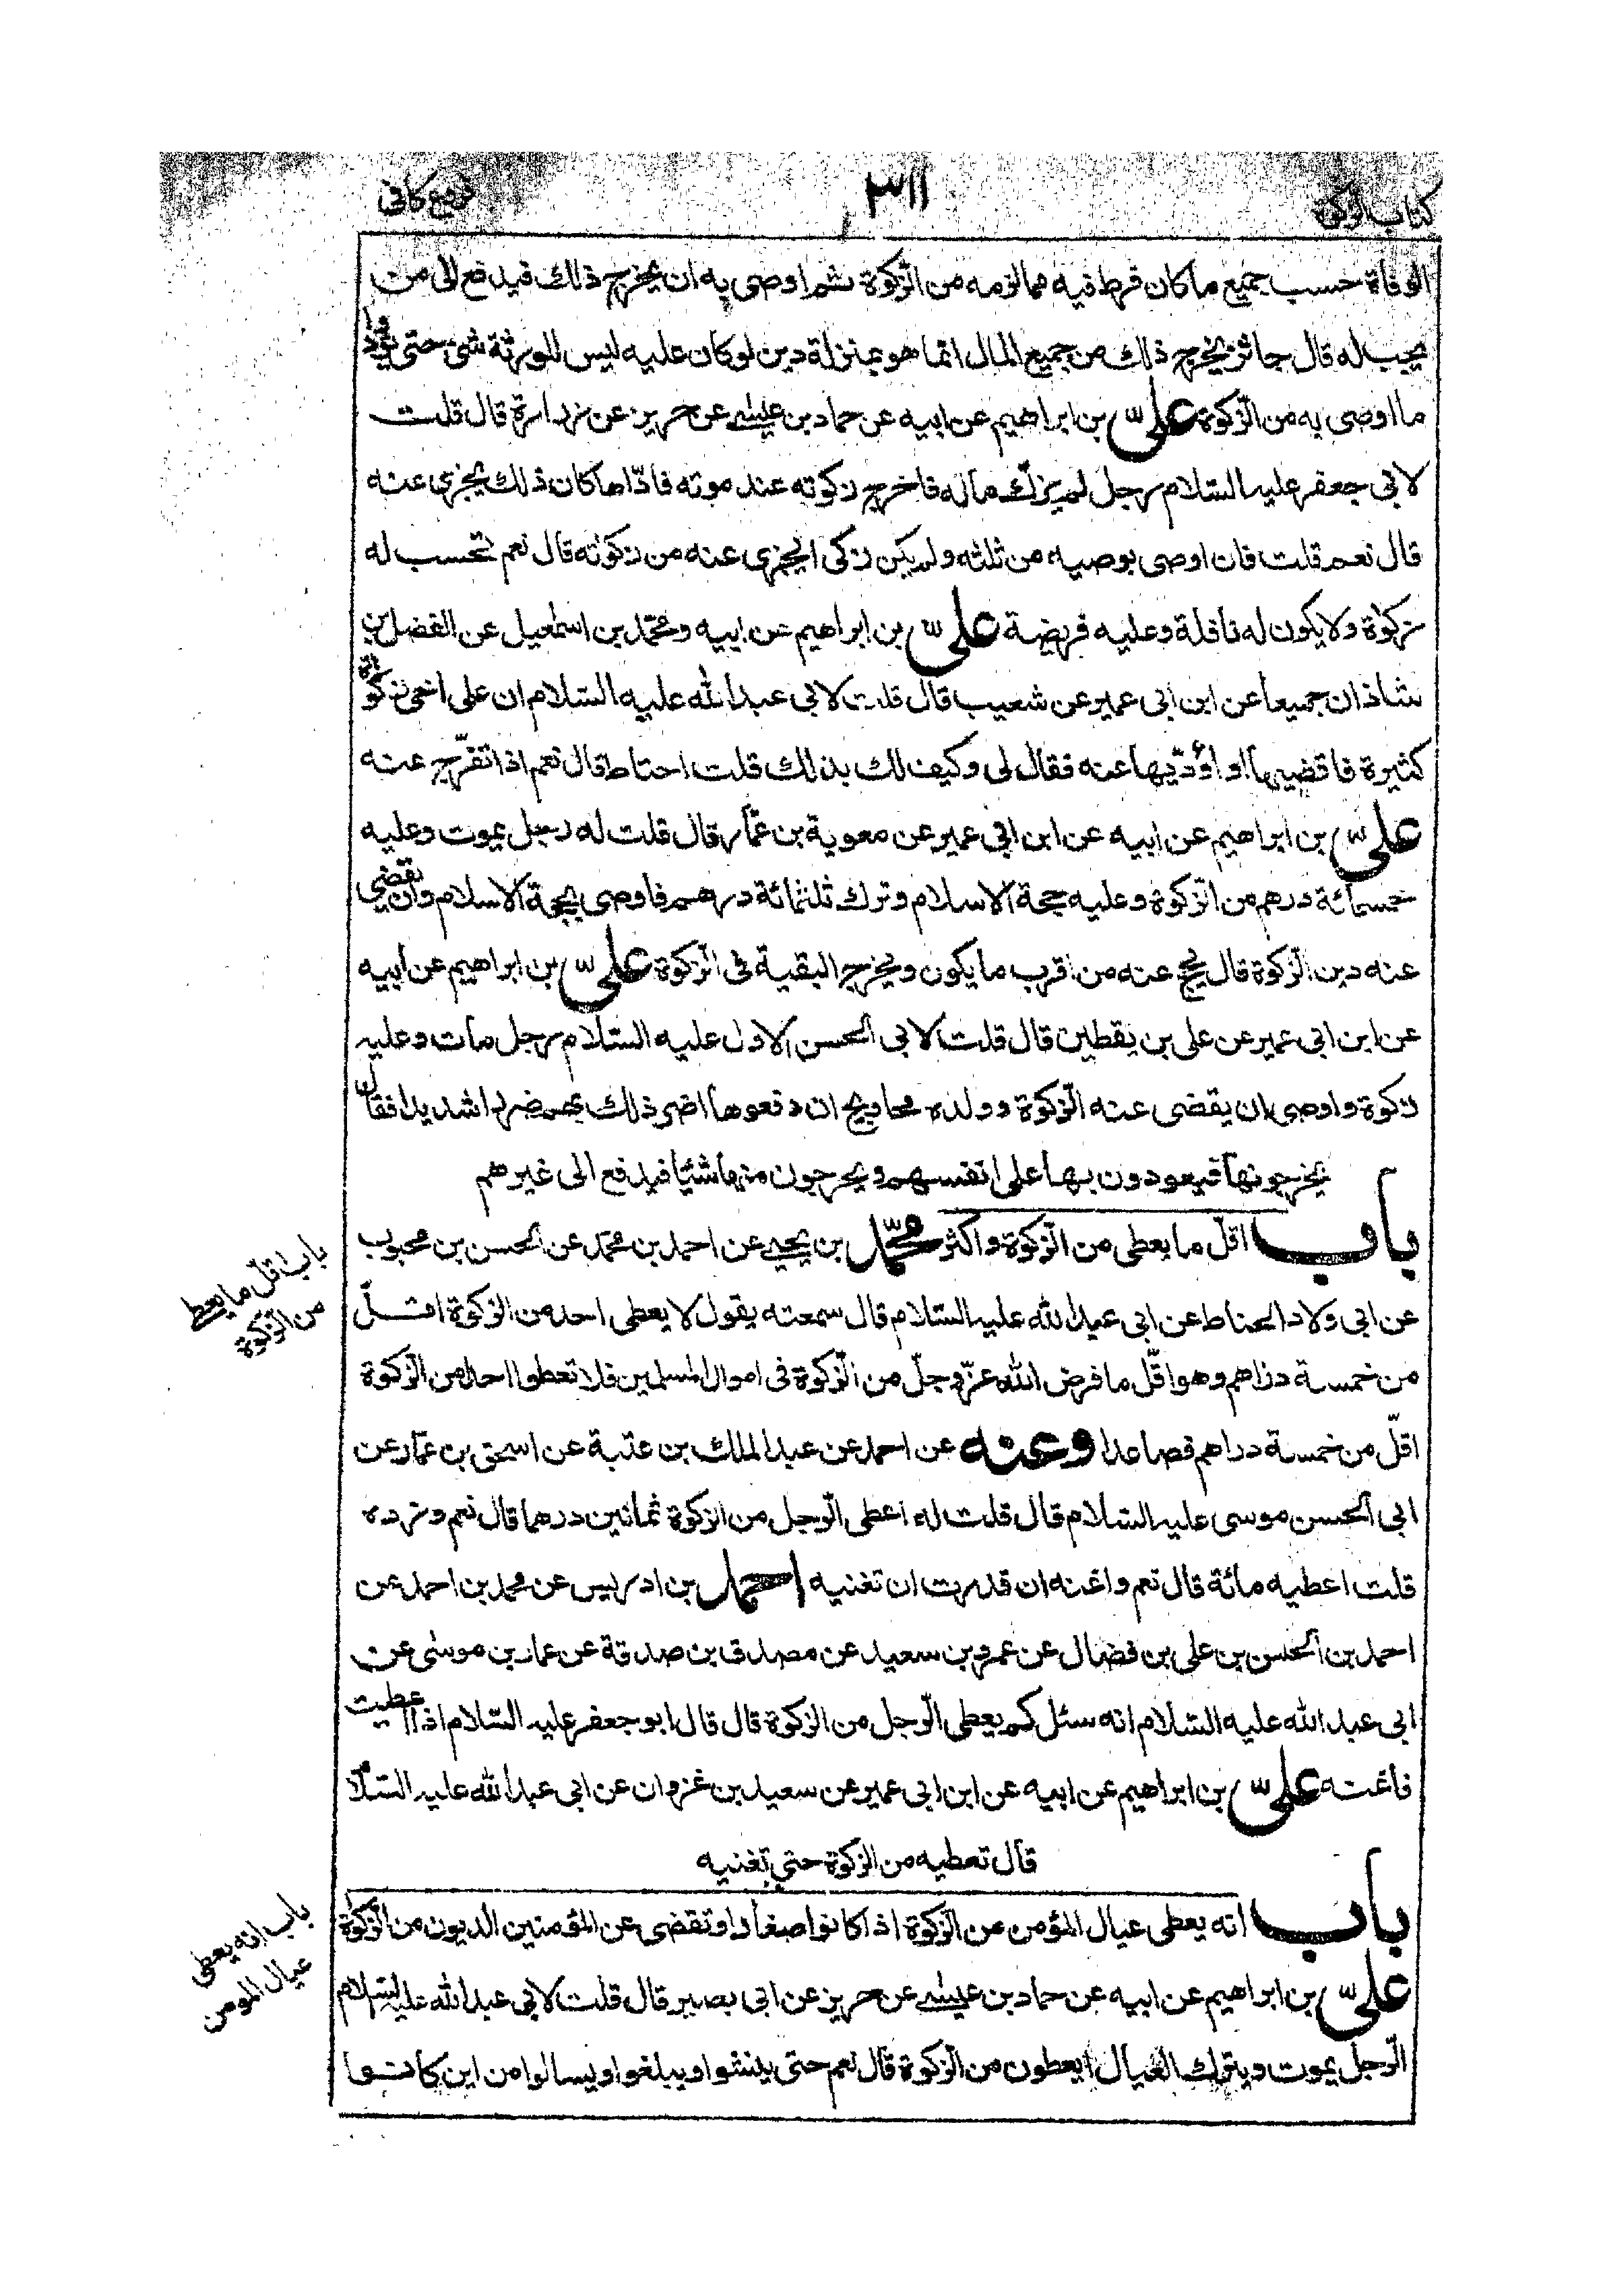 كتاب الزكوة
٣١١
فروع كافى
الوفاة حسب جميع ما كان فرط فيه مما لزمه من الزّكوة ثم اوصى به ان يخرج ذلك فيدفع الى من
يجب له قال جائز يخرج ذلك من جميع المال انما هو بمنزلة دين لو كان عليه ليس للورثة شئ حتى يؤدوا
ما اوصى به من الزّكوة علىّ بن ابراهيم عن ابيه عن حماد بن عيسى عن حريز عن زرارة قال قلت
لابى جعفر عليه السّلام رجل لم يزكّ ماله فاخرج زكوته عند موته فادّاها كان ذلك يجزى عنه
قال نعم قلت فان اوصى بوصيه من ثلثه ولم يكن زكى ايجزى عنه من زكوته قال نعم تحسب له
زكوة ولا يكون له نافلة وعليه فريضة علىّ بن ابراهيم عن ابيه ومحمّد بن اسمعيل عن الفضل بن
شاذان جميعا عن ابن ابى عمير عن شعيب قال قلت لابى عبد الله عليه السّلام ان على اخى زكوة
كثيرة فاقضيها او اؤدّيها عنه فقال لى وكيف لك بذلك قلت احتاط قال نعم اذا تفرّج عنه
علىّ بن ابراهيم عن ابيه عن ابن ابى عمير عن معوية بن عمّار قال قلت له رجل يموت وعليه
خمسمائة درهم من الزّكوة وعليه حجة الاسلام وترك ثلثمائة درهم فاوصى بحجة الاسلام وان تقضى
عنه دين الزّكوة قال يحج عنه من اقرب ما يكون ويخرج البقية فى الزّكوة علىّ بن ابراهيم عن ابيه
عن ابن ابى عمير عن على بن يقطين قال قلت لابى الحسن الاول عليه السّلام رجل مات وعليه
زكوة واوصى ان يقضى عنه الزّكوة وولده محاويج ان دفعوها اضر ذلك بهم ضررا شديدا فقال
يخرجونها فيعودون بها على انفسهم ويخرجون منها شئيا فيدفع الى غيرهم
باب اقلّ ما يعطى من الزّكوة واكثر محمّد بن يحيى عن احمد بن محمّد عن الحسن بن محبوب
عن ابى ولاد الحناط عن ابى عبد الله عليه السّلام قال سمعته يقول لا يعطى احد من الزكوة اقلّ
من خمسة دراهم وهو اقّل ما فرض الله عزّ وجلّ من الزّكوة فى اموال المسلمين فلا تعطوا احدا من الزّكوة
اقلّ من خمسة دراهم فصاعدا وعنه عن احمد عن عبد الملك بن عتبة عن اسحق بن عمّار عن
ابى الحسن موسى عليه السّلام قال قلت له اعطى الرّجل من الزكوة ثمانين درهما قال نعم وزده
قلت اعطيه مائة قال نعم واغنه ان قدرت ان تغنيه احمد بن ادريس عن محمد بن احمد عن
احمد بن الحسن بن على بن فضال عن عمرو بن سعيد عن مصدق بن صدقة عن عمار بن موسى عن
ابى عبد الله عليه السّلام انه سئل كم يعطى الرّجل من الزكوة قال قال ابو جعفر عليه السّلام اذا اعطيت
فاغنه علىّ بن ابراهيم عن ابيه عن ابن ابى عمير عن سعيد بن غزوان عن ابى عبد الله عليه السّلام
قال تعطيه من الزكوة حتى تغنيه
باب انه يعطى عيال المؤمن من الزّكوة اذا كانوا صغارا وتقضى عن المؤمنين الديون من الزّكوة
علىّ بن ابراهيم عن ابيه عن حماد بن عيسى عن حريز عن ابى بصير قال قلت لابى عبد الله عليه السّلام
الرّجل يموت ويترك العيال ايعطون من الزّكوة قال نعم حتى ينشوا ويبلغوا ويسالوا من اين كانوا
باب اقلّ ما يعطى
من الزّكوة
باب انه يعطى
عيال المومن